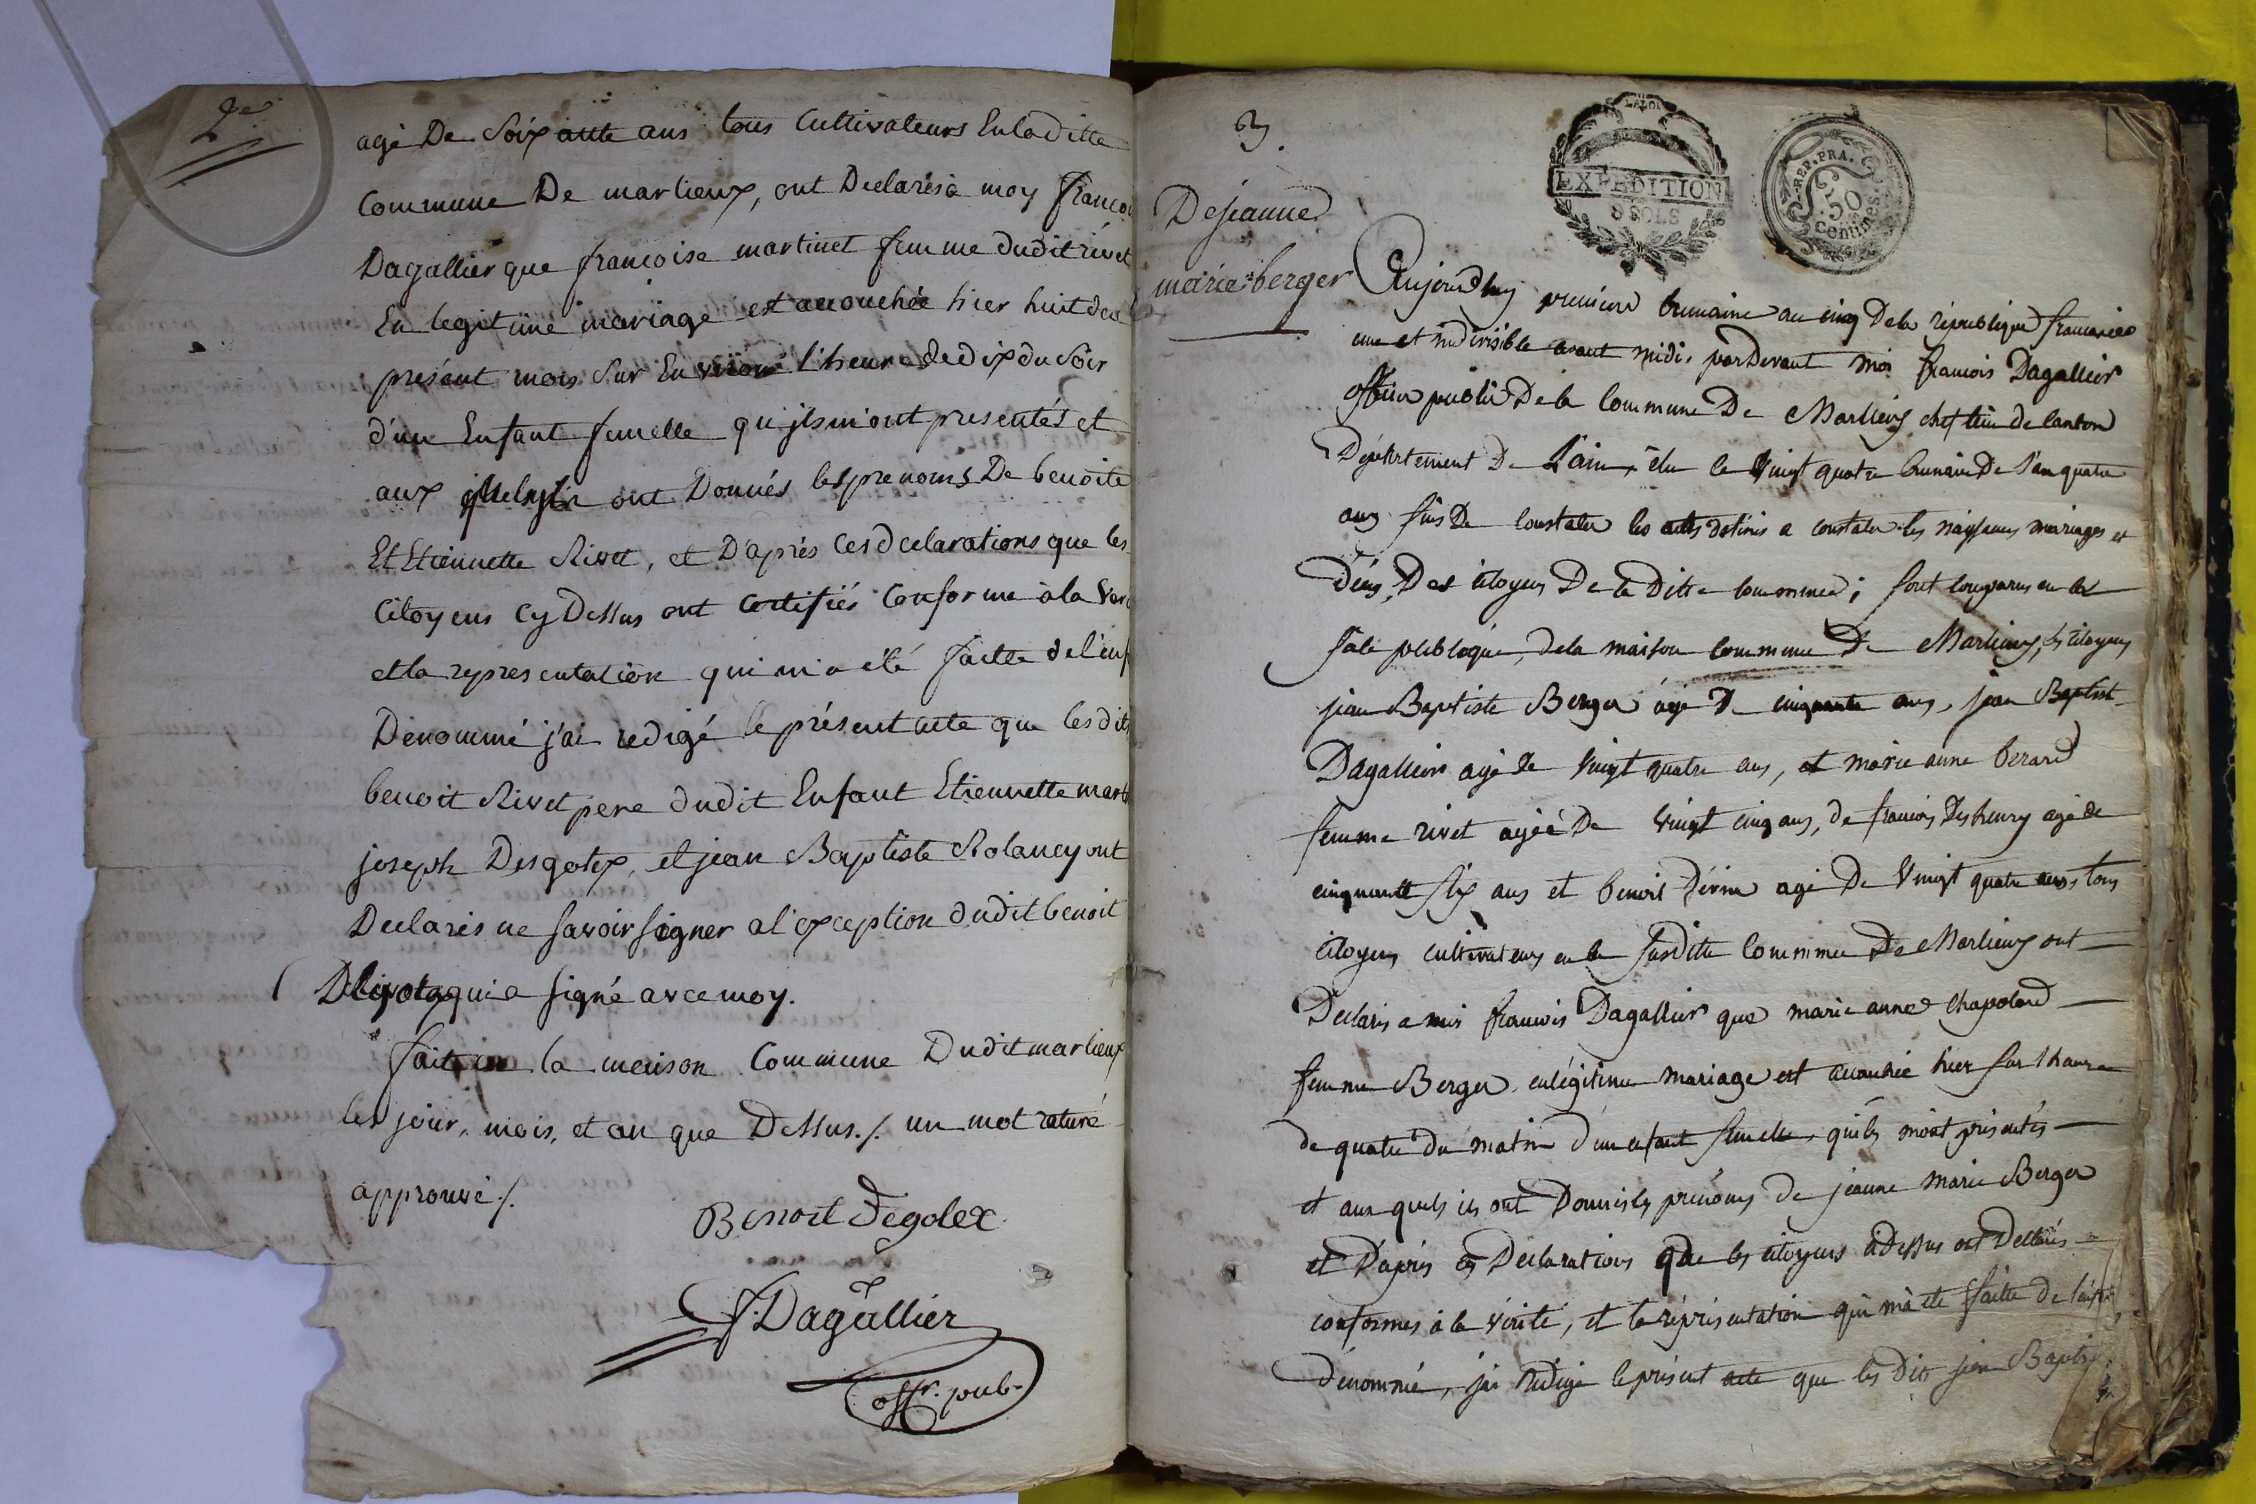 2e
agé De Soixante ans tous Cultivateurs En la ditte
Commune De marlieux, ont Declarés à moy françoi
Dagallier que françoise martinet femme dudit rivet
En legitime mariage est accouchée hier huit du
présent mois Sur Environ l'heure de dix du Soir
d'un Enfant femelle qu'ils m'ont presentés et
aux quels ils ont Donnés les prenoms De benoite
Et Etiennette Rivet, et D'après Ces declarations que les
Citoyens Cy Dessus ont certifiés Conforme à la Ver
et la representation qui m'a été faitte de l'enf
Denommé j'ai redigé le présent acte que les dits
benoit Rivet pere dudit Enfant Etiennette mart
joseph Desgolex, et jean Baptiste Rolancy ont
Declarés ne Savoir signer al'exception dudit benoit
qui a signé avec moy.
fait en la meison Commune Dudit marlieux
les jour, mois, et an que Dessus ./. un mot raturé
approuvé ./.
Benoit Degolex
F. Dagallier
offr. pub.
3.
LA LOI
EXPEDITION
8 SOLS
REP. FRA.
50
Centimes.
De jeanne
marie berger
Aujourdhuy premiere brumaire an cinq De la république françaises
une et indivisible avant midi, par Devant moi francois Dagallier
officier public De la Commune De Marlieux chef lieu de Canton
Département De L'ain, élu le Vingt quatre brumaire De l'an quatre
aux fins De Constater les actes destinés a constater les naissances mariages et
Décés, Des citoyens De la Ditte Commune; sont comparus en la
sale publique, de la maison Commune De Marlieux, les citoyens
jean Baptiste Berger agé De cinquante ans, jean Baptiste
Dagallier agé de Vingt quatre ans, et marie anne berard
femme rivet agéé De Vingt cinq ans, de francois Deshenry agé de
cinquante six ans et benoit agé De Vingt quatre ans tous
citoyens cultivateurs en la susditte Commune De Marlieux ont
Declarés a moi francois Dagallier que marie anne Chapoland
femme Berger en légitime mariage est accouchée hier sur l'heure
de quatre du matin d'un enfant femelle, qu'ils m'ont présentés
et aux quels ils ont Donnés les prénoms de jeanne Marie Berger
et D'après ces Declarations que les citoyens ci Dessus ont Declarés
conformes à la vérité, et la réprésentation qui m'a été faitte de l'enfant
dénommé, j'ai rédigé le présent acte que les Dits jean Baptis